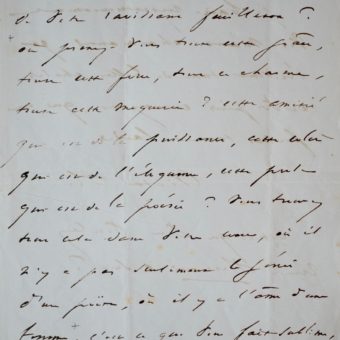 de votre ravissant feuilleton ?
où prenez-vous toute cette grâce,
toute cette finesse, tout ce charme,
toute cette ? cette
qui est de la puissance, cette
qui est de l'élégance, cette
qui est de la poésie ? Vous trouvez
tout cela dans votre cœur, où il
n'y a pas seulement le génie
d'un poète, où il y a l'âme d'une
femme, c'est ce qui vous fait sublime,